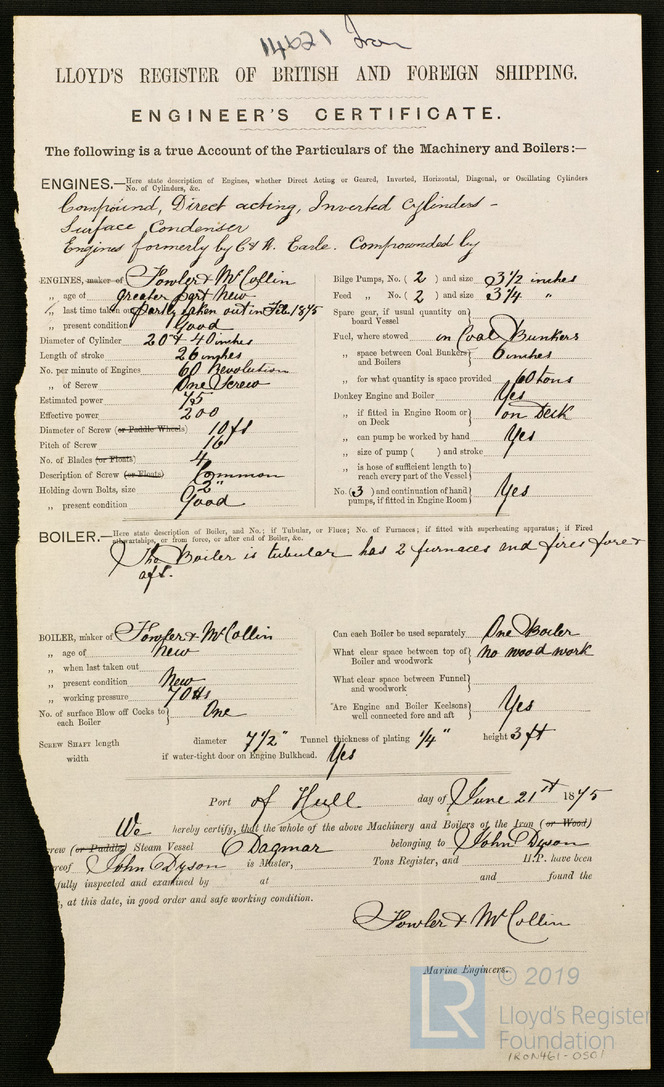 14621 Iron
LLOYD'S REGISTER OF BRITISH AND FOREIGN SHIPPING.
ENGINEER'S CERTIFICATE.
The following is a true Account of the Particulars of the Machinery and Boilers:—
ENGINES.—Here state description of Engines, whether Direct Acting or Geared, Inverted, Horizontal, Diagonal, or Oscillating Cylinders
No. of Cylinders, &c.
Compound, Direct acting, Inverted Cylinders -
Surface Condenser
Engines formerly by C & W. Earle. Compounded by
ENGINES, maker of Fowler & McCollin
„ age of greater part New
„ last time taken out partly taken out in Feb. 1875
„ present condition Good
Diameter of Cylinder 20 & 40 inches
Length of stroke 26 inches
No. per minute of Engines 60 Revolution
„ of Screw One Screw
Estimated power 75
Effective power 200
Diameter of Screw (or Paddle Wheels) 10 ft
Pitch of Screw 16
No. of Blades (or Floats) 4
Description of Screw (or Floats) Common
Holding down Bolts, size 2"
„ present condition Good
Bilge Pumps, No. ( 2 ) and size 3 1/2 inches
Feed „ No. ( 2 ) and size 3 1/4 „
Spare gear, if usual quantity on board Vessel
Fuel, where stowed in Coal Bunkers
„ space between Coal Bunkers and Boilers 6 inches
„ for what quantity is space provided 60 tons
Donkey Engine and Boiler Yes
„ if fitted in Engine Room or on Deck on Deck
„ can pump be worked by hand Yes
„ size of pump ( ) and stroke
„ is hose of sufficient length to reach every part of the Vessel
No. ( 3 ) and continuation of hand pumps, if fitted in Engine Room Yes
BOILER.—Here state description of Boiler, and No.; if Tubular, or Flues; No. of Furnaces; if fitted with superheating apparatus; if Fired
thwartships, or from force, or after end of Boiler, &c.
The Boiler is tubular has 2 furnaces and fires fore &
aft.
BOILER, maker of Fowler & McCollin
„ age of New
„ when last taken out
„ present condition New
„ working pressure 70 lbs
No. of surface Blow off Cocks to each Boiler One
Can each Boiler be used separately One Boiler
What clear space between top of Boiler and woodwork no wood work
What clear space between Funnel and woodwork
Are Engine and Boiler Keelsons well connected fore and aft Yes
SCREW SHAFT length diameter 7 1/2" Tunnel thickness of plating 1/4" height 3 ft
width if water-tight door on Engine Bulkhead. Yes
Port of Hull day of June 21st 1875
We hereby certify, that the whole of the above Machinery and Boilers of the Iron (or Wood)
crew (or Paddle) Steam Vessel Dagmar belonging to John Dyson
reof John Dyson is Master, Tons Register, and H.P. have been
fully inspected and examined by at and found the
, at this date, in good order and safe working condition.
Fowler & McCollin
Marine Engineers.
LR
© 2019
Lloyd's Register
Foundation
IRON461-0501